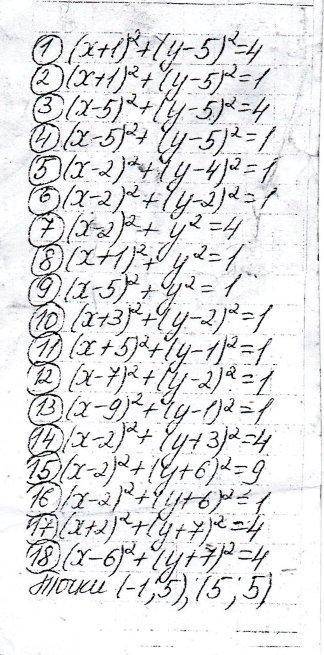 ① (x+1)²+(y-5)²=4
② (x+1)²+(y-5)²=1
③ (x-5)²+(y-5)²=4
④ (x-5)²+(y-5)²=1
⑤ (x-2)²+(y-4)²=1
⑥ (x-2)²+(y-2)²=1
⑦ (x-2)²+y²=4
⑧ (x+1)²+y²=1
⑨ (x-5)²+y²=1
⑩ (x+3)²+(y-2)²=1
⑪ (x+5)²+(y-1)²=1
⑫ (x-7)²+(y-2)²=1
⑬ (x-9)²+(y-1)²=1
⑭ (x-2)²+(y+3)²=4
⑮ (x-2)²+(y+6)²=9
⑯ (x-2)²+(y+6)²=1
⑰ (x+2)²+(y+7)²=4
⑱ (x-6)²+(y+7)²=4
Точки (-1;5),(5;5)